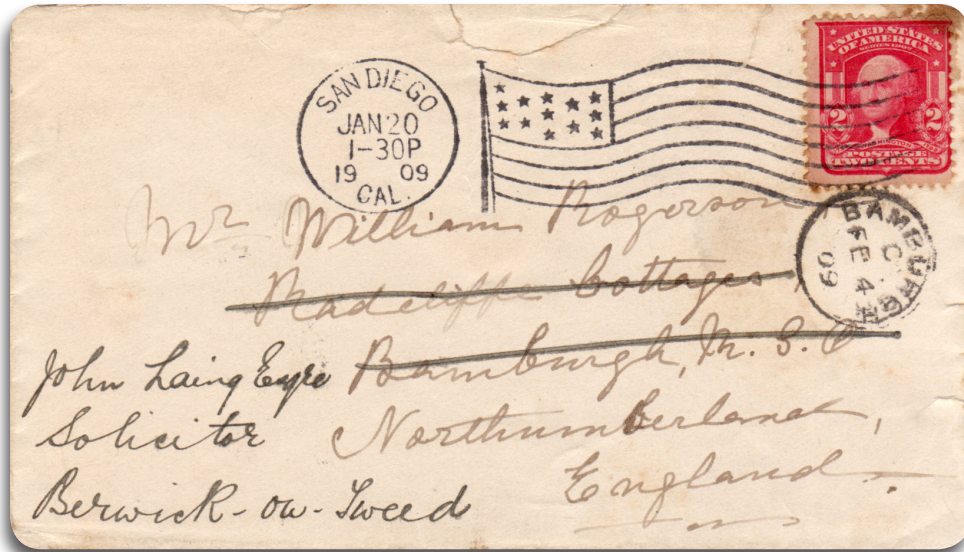 SAN DIEGO
JAN 20
1-30P
19 09
CAL.
UNITED STATES
OF AMERICA
SERIES 1902
2 2
POSTAGE
TWO CENTS
BAMBURGH
C
FE 4
09
Mr William Rogerson
Radcliffe Cottages,
Bamburgh, R. S. O
Northumberland,
England.
John Laing Eyre
Solicitor
Berwick-on-Tweed